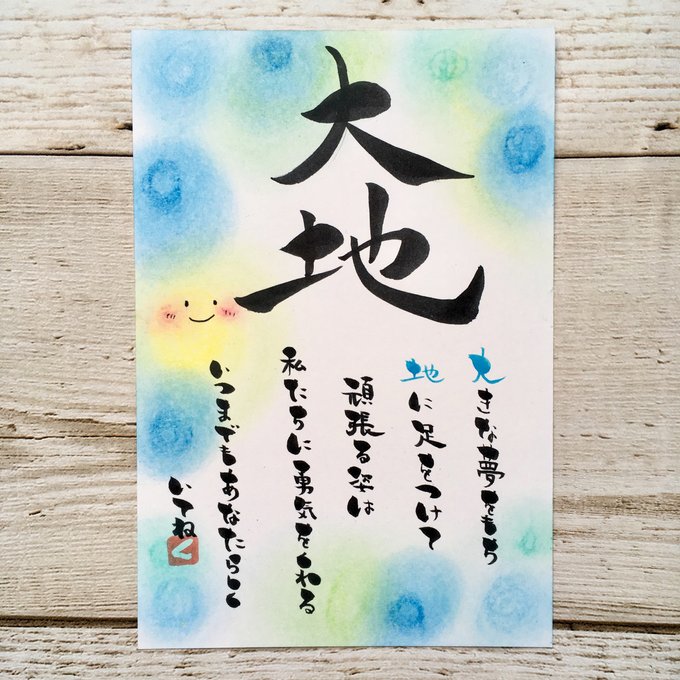 大地
大きな夢をもち
地に足をつけて
頑張る姿は
私たちに勇気をくれる
いつまでもあなたらしく
いてね
く